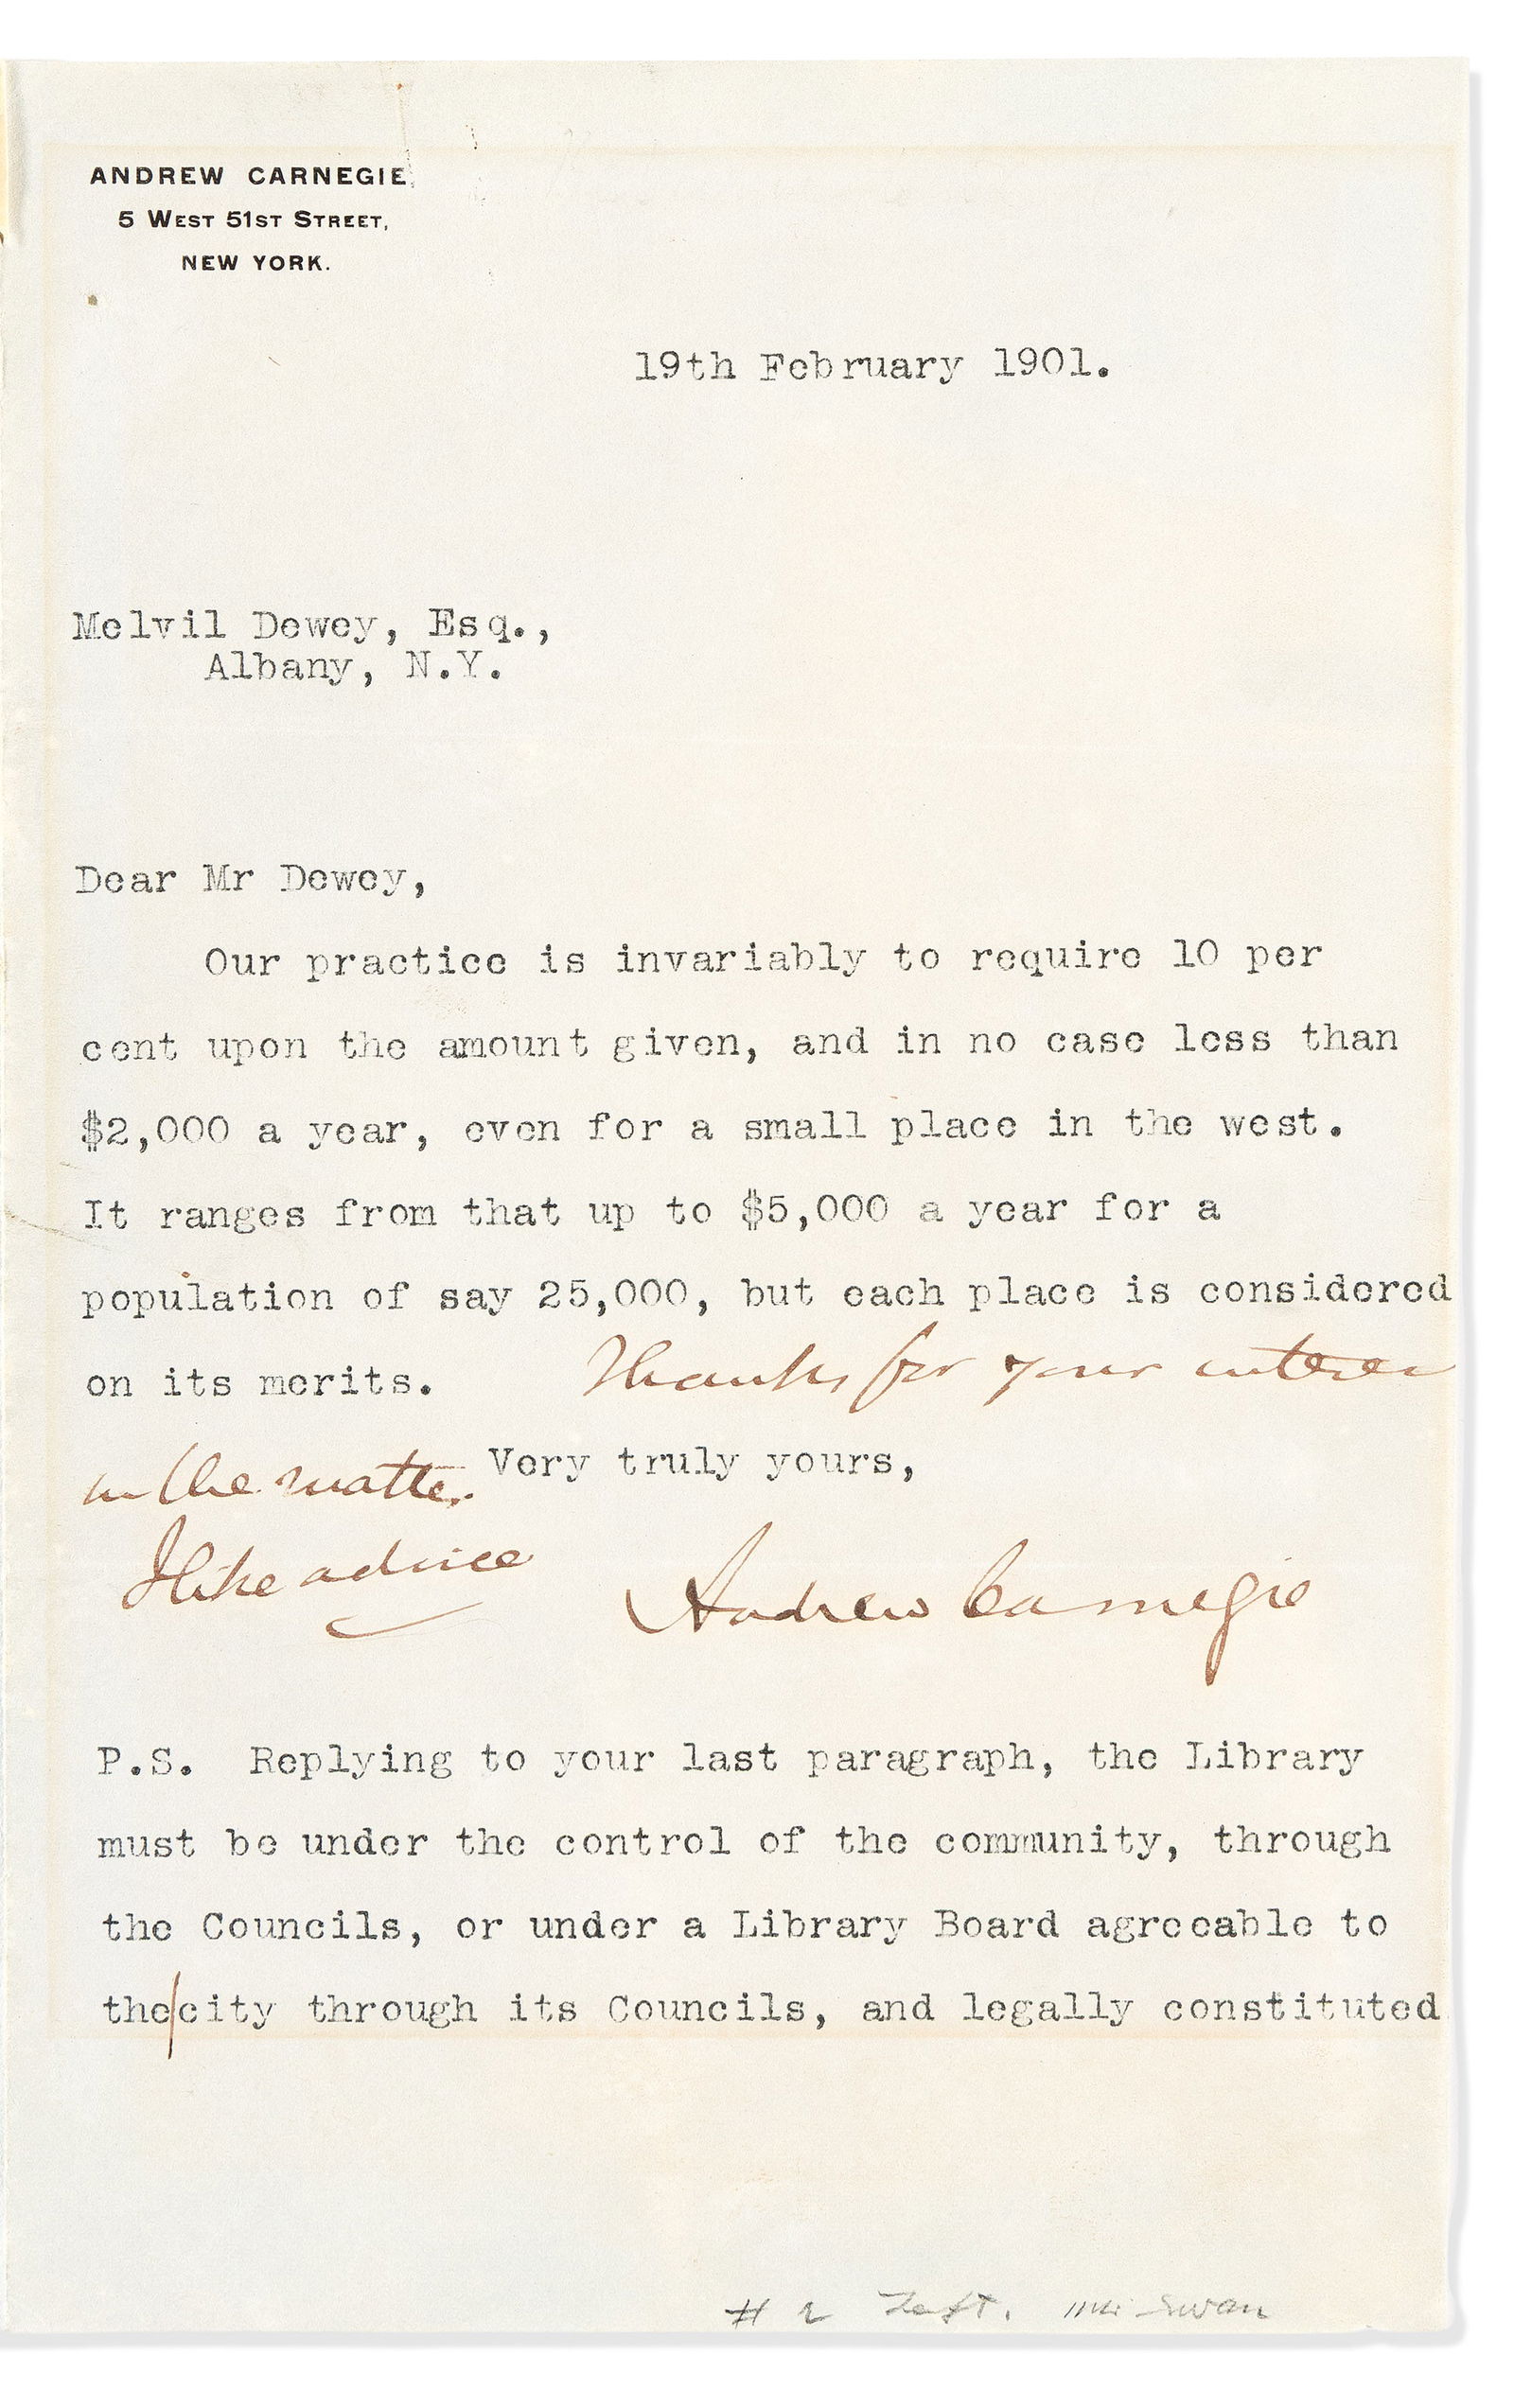 ANDREW CARNEGIE
5 WEST 51ST STREET,
NEW YORK.
19th February 1901.
Melvil Dewey, Esq.,
Albany, N.Y.
Dear Mr Dewey,
Our practice is invariably to require 10 per
cent upon the amount given, and in no case less than
$2,000 a year, even for a small place in the west.
It ranges from that up to $5,000 a year for a
population of say 25,000, but each place is considered
on its merits. Thanks for your interes
in the matter. Very truly yours,
I like advice
Andrew Carnegie
P.S. Replying to your last paragraph, the Library
must be under the control of the community, through
the Councils, or under a Library Board agreeable to
the/city through its Councils, and legally constituted
# 2 Mr Swan